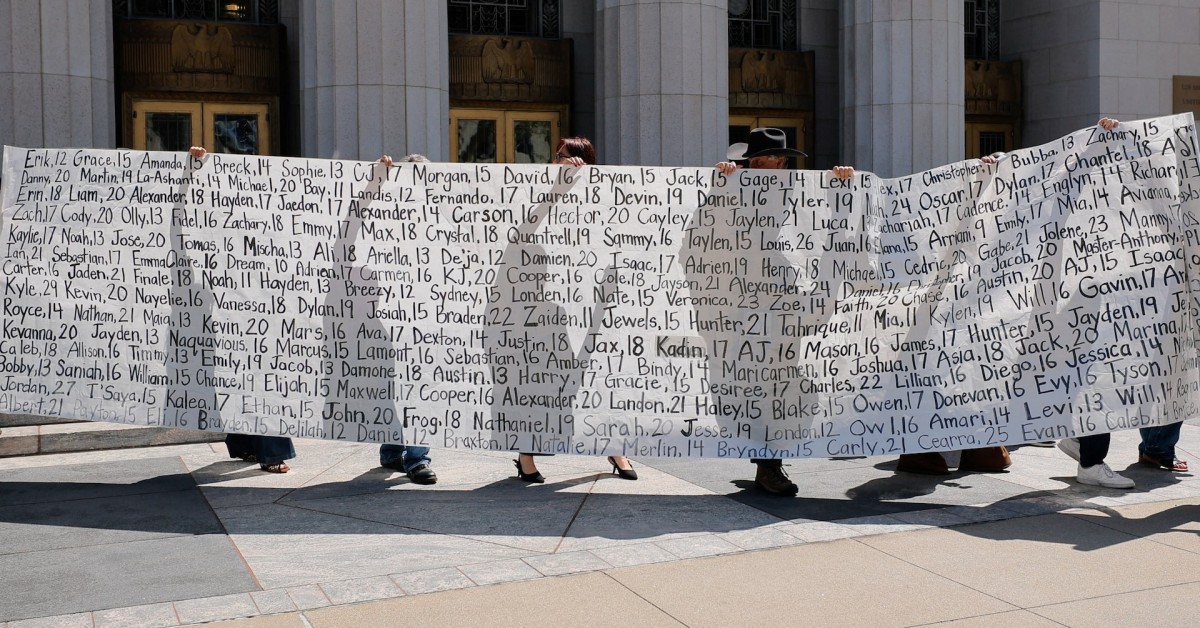 Erik,12 Grace,15 Amanda,15 Breck,14 Sophie,13 CJ,17 Morgan,15 David,16 Bryan,15 Jack,15 Gage,14 Lexi,15 Christopher, Bubba,13 Zachary,15
Danny,20 Martin,19 La-Ashanti,14 Michael,20 Bay,11 Landis,12 Fernando,17 Lauren,18 Devin,19 Daniel,16 Tyler,19 24 Oscar,17 Dylan,17 Chantel,18
Erin,18 Liam,20 Alexander,18 Hayden,17 Jaedon,17 Alexander,14 Carson,16 Hector,20 Cayley,15 Jaylen,21 Luca, 17 Cadence,14 Englyn,14
Zach,17 Cody,20 Olly,13 Fidel,16 Zachary,18 Emmy,17 Max,18 Crystal,18 Quantrell,19 Sammy,16 Taylen,15 Louis,26 Juan,16 Elana,15 Emily,17 Mia,14
Kaylie,17 Noah,13 Jose,20 Tomas,16 Mischa,13 Ali,18 Ariella,13 Deja,12 Damien,20 Isaac,17 Adrien,19 Henry,18 Michael,15 Cedric, Gabe,21 Jolene,23 Manny
Ian,21 Sebastian,17 EmmaClaire,16 Dream,10 Adrien,17 Carmen,16 KJ,20 Cooper,16 Cole,18 Jayson,21 Alexander,24 Jacob,20 Master-Anthony
Carter,16 Jaden,21 Finale,18 Noah,11 Hayden,13 Breezy,12 Sydney,15 Londen,16 Nate,15 Veronica,23 Zoe,14 Faith, Chase,16 Austin,20 AJ,15 Isaac
Kyle,29 Kevin,20 Nayelie,16 Vanessa,18 Dylan,19 Josiah,15 Braden,22 Zaiden,11 Jewels,15 Hunter,21 Tahrique,11 Mia,11 Kylen,19 Will,16 Gavin,17
Royce,14 Nathan,21 Maia,13 Kevin,20 Mars,16 Ava,17 Dexton,14 Justin,18 Jax,18 Kadin,17 AJ,16 Mason,16 James,17 Hunter,15 Jayden,19
Kevanna,20 Jayden,13 Naquavious,16 Marcus,15 Lamont,16 Sebastian,16 Amber,17 Bindy,14 Maricarmen,16 Joshua,17 Asia,18 Jack,20 Marina
Caleb,18 Allison,16 Timmy,13 Emily,19 Jacob,13 Damone,18 Austin,13 Harry,17 Gracie,15 Desiree,17 Charles,22 Lillian,16 Diego,16 Jessica,14
Bobby,13 Saniah,16 William,15 Chance,19 Elijah,15 Maxwell,17 Cooper,16 Alexander,20 Landon,21 Haley,15 Blake,15 Owen,17 Donevan,16 Evy,16 Tyson,17
Jordan,27 T'Saya,15 Kalea,17 Ethan,15 John,20 Frog,18 Nathaniel,19 Sarah,20 Jesse,19 London,12 Owl,16 Amari,14 Levi,13 Will,14
Albert,21 Payton,15 16 Brayden,15 Delilah,12 Daniel,12 Braxton,12 Natalie,17 Merlin,14 Bryndyn,15 Carly,21 Cearra,25 Evan,16 Caleb,14